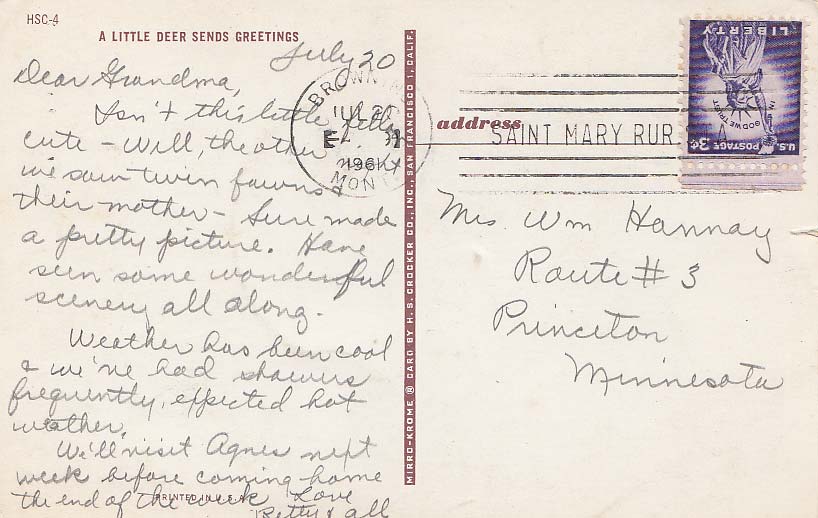 HSC-4
A LITTLE DEER SENDS GREETINGS
July 20
Dear Grandma,
Isn't this little fella
cute - Well, the other
we saw twin fawns &
their mother - Sure made
a pretty picture. Have
seen some wonderful
scenery all along.
Weather has been cool
& we've had showers
frequently, expected hot
weather.
We'll visit Agnes next
week before coming home
the end of the week Love
Betty & all
PRINTED IN U.S.A.
MIRRO-KROME ® CARD BY H. S. CROCKER CO., INC., SAN FRANCISCO 1, CALIF.
BROWNING
JUL 20
1961
MONT
address
SAINT MARY RUR STA
LIBERTY
IN GOD WE TRUST
U.S. POSTAGE 3¢
Mrs Wm Hannay
Route # 3
Princeton
Minnesota